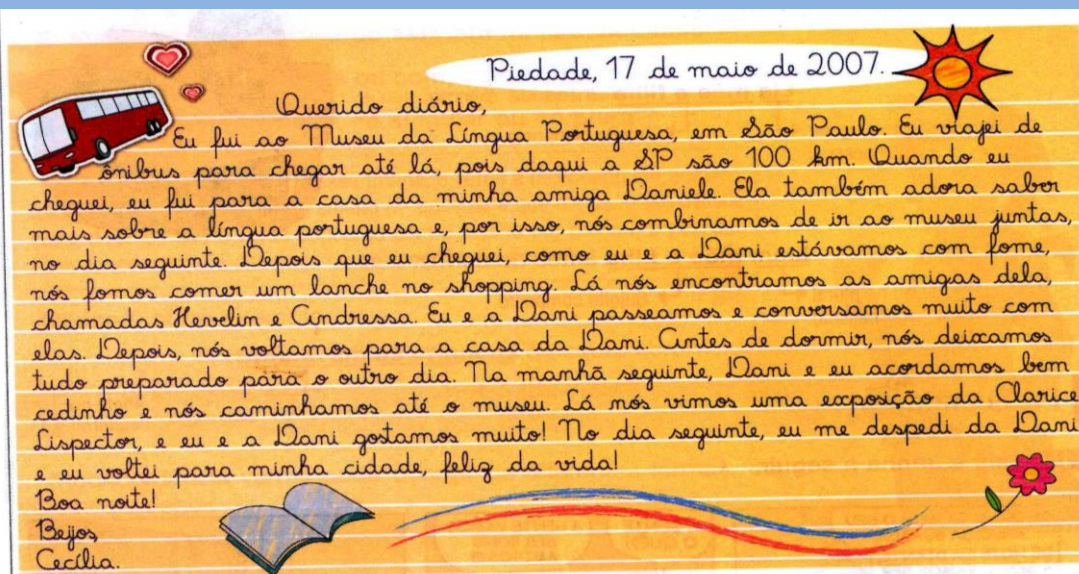 Piedade, 17 de maio de 2007.
Querido diário,
Eu fui ao Museu da Língua Portuguesa, em São Paulo. Eu viajei de
ônibus para chegar até lá, pois daqui a SP são 100 km. Quando eu
cheguei, eu fui para a casa da minha amiga Daniele. Ela também adora saber
mais sobre a língua portuguesa e, por isso, nós combinamos de ir ao museu juntas,
no dia seguinte. Depois que eu cheguei, como eu e a Dani estávamos com fome,
nós fomos comer um lanche no shopping. Lá nós encontramos as amigas dela,
chamadas Hevelin e Andressa. Eu e a Dani passeamos e conversamos muito com
elas. Depois, nós voltamos para a casa da Dani. Antes de dormir, nós deixamos
tudo preparado para o outro dia. Na manhã seguinte, Dani e eu acordamos bem
cedinho e nós caminhamos até o museu. Lá nós vimos uma exposição da Clarice
Lispector, e eu e a Dani gostamos muito! No dia seguinte, eu me despedi da Dani
e eu voltei para minha cidade, feliz da vida!
Boa noite!
Beijos,
Cecília.